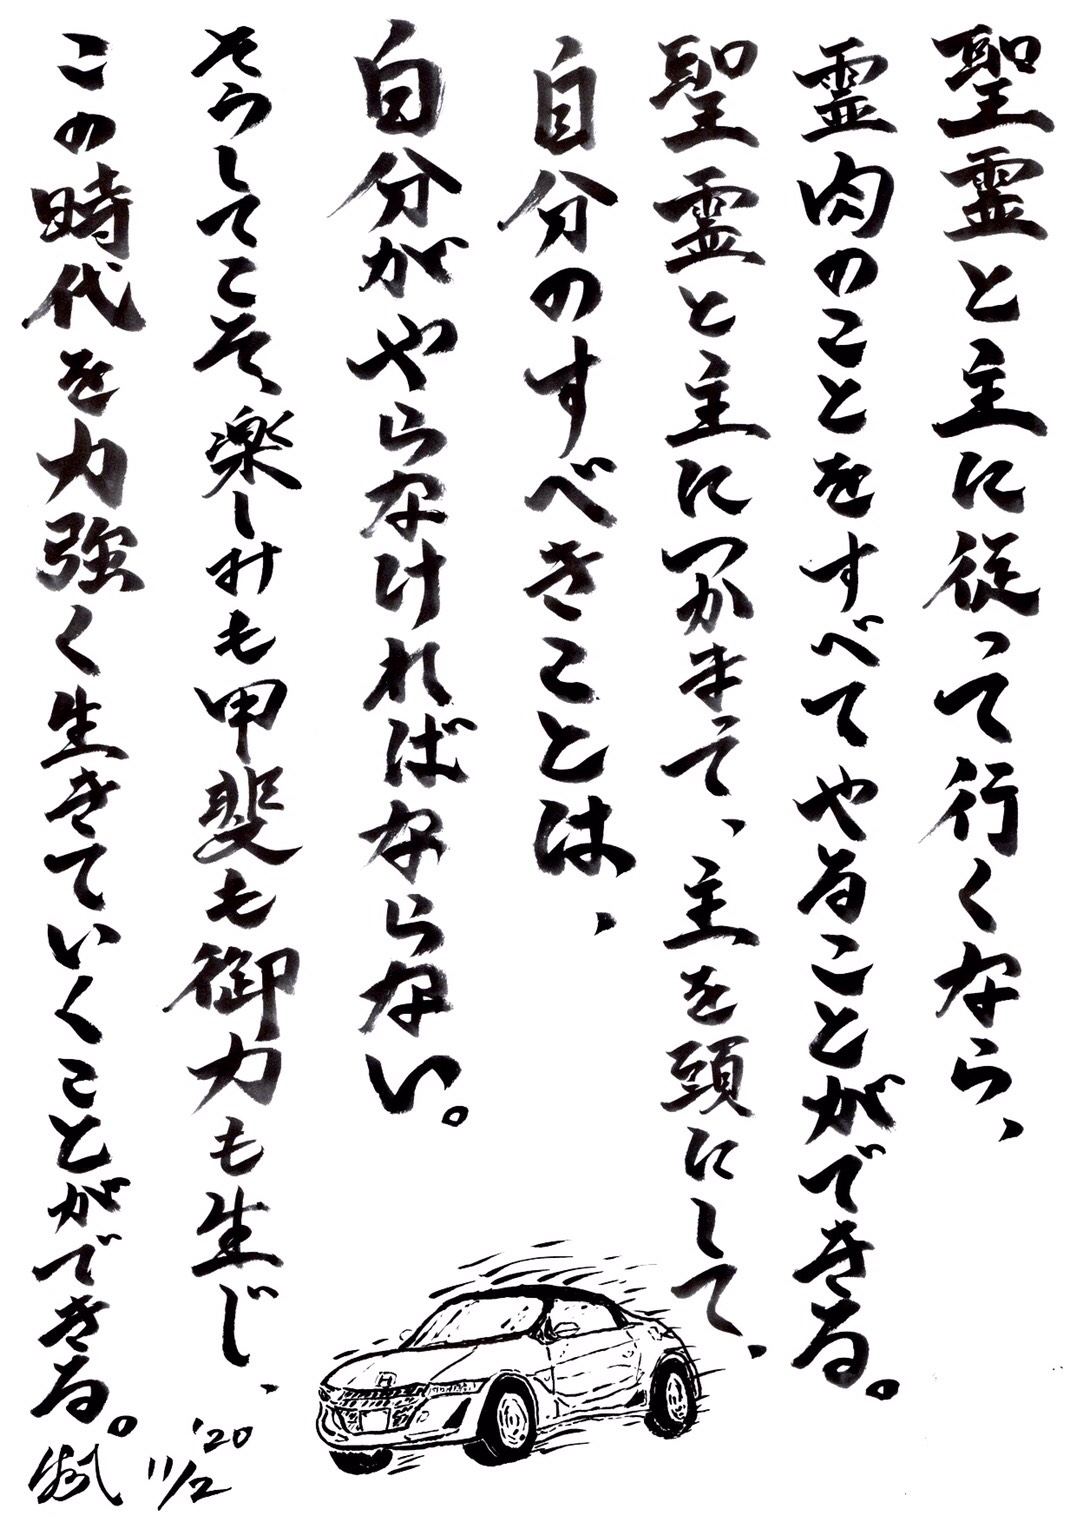 聖霊と主に従って行くなら、
霊肉のことをすべてやることができる。
聖霊と主につかまって、主を頭にして、
自分のすべきことは、
自分がやらなければならない。
そうしてこそ楽しみも甲斐も御力も生じ、
この時代を力強く生きていくことができる。
'20
11/2